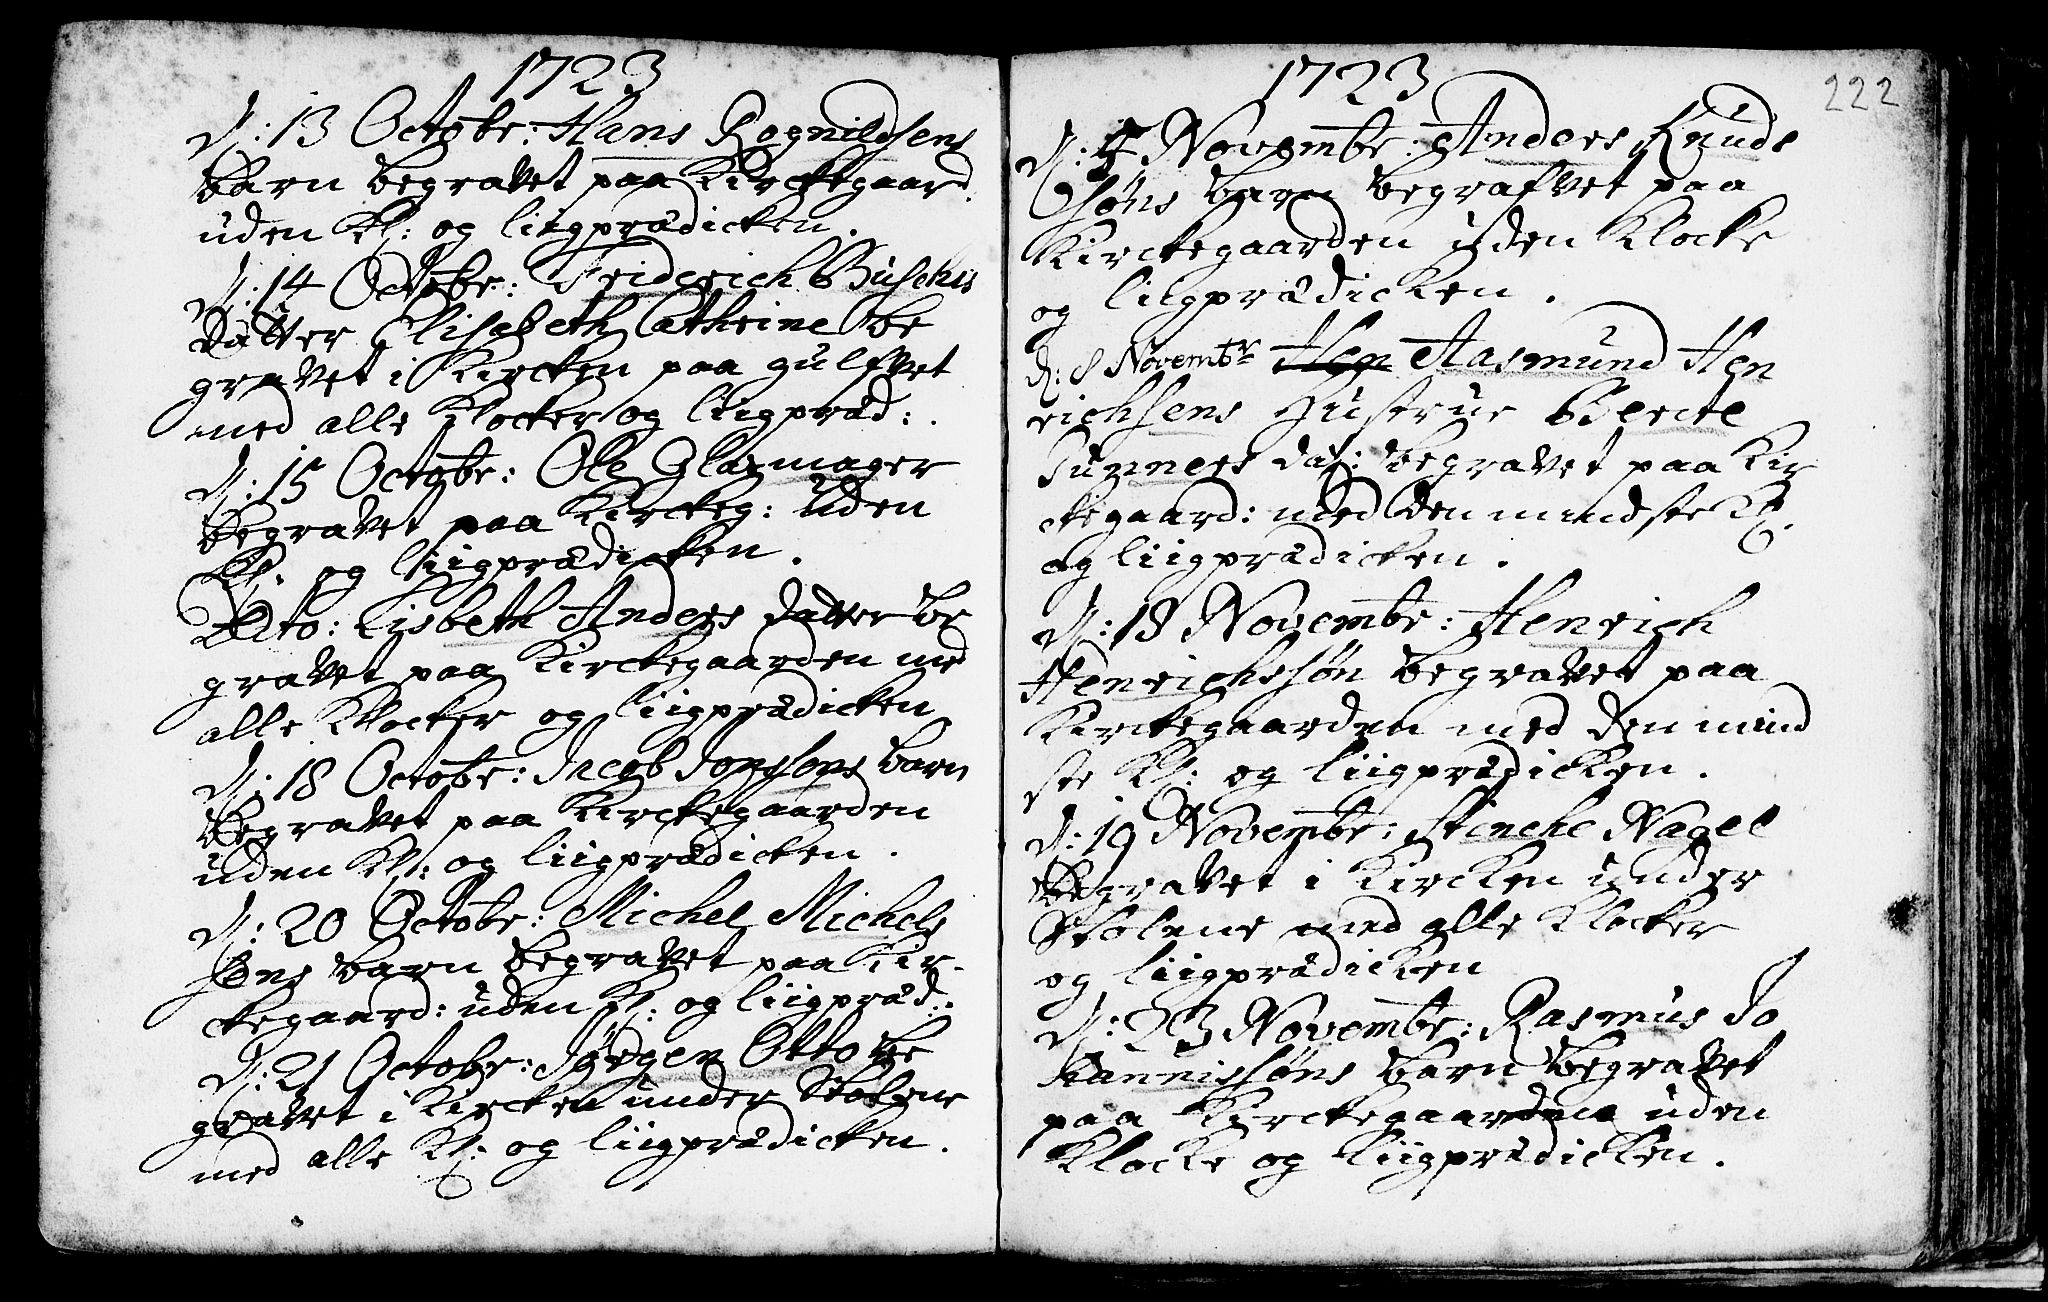 1723
D: 13 Octobr: Hans Rognildsens
barn begravet paa Kirckegaard
uden Kl: og liigprædicken.
D: 14 Octobr: Friderich Buschis
datter Elisabeth Cathrine be
gravet i Kircken paa gulfvet
med alle Klocker og liigpræd:.
D: 15 Octobr: Ole Glarmager
begravet paa Kirckeg: uden
Kl: og liigprædicken.
Dito: Lisbeth Anders datter be
gravet paa Kirckegaarden med
alle Klocker og liigprædicken
D: 18 Octobr: Jacob Jonssøns barn
begravet paa Kirckegaarden
uden Kl: og liigprædicken.
D: 20 Octobr: Michel Michels
søns barn begravet paa Kir-
ckegaard: uden Kl: og liigpræd:
D: 21 Octobr: Jørgen Otto be
gravet i Kircken under Stolene
med alle Kl: og liigprædicken.
1723
222
D: Novembr: Anders Knuds
søns barn begrafvet paa
Kirckegaarden uden Klocke
og liigprædicken.
D: 8 Novembr Hen Aasmund Hen
richsens Hustrue Berte
Gunners dat: begravet paa Kir
ckegaard: med den mindste Kl.
og liigprædicken.
D: 18 Novembr: Henrich
Henrichssøn begravet paa
Kirckegaarden med den mind
ste Kl: og liigprædicken.
D: 19 Novembr: Stenche Nagel
begravet i Kircken under
Stolene med alle Klocker
og liigprædicken
D: 23 Novembr: Rasmus Jo
hannissøns barn begravet
paa Kirckegaarden uden
Klocke og liigprædicken.